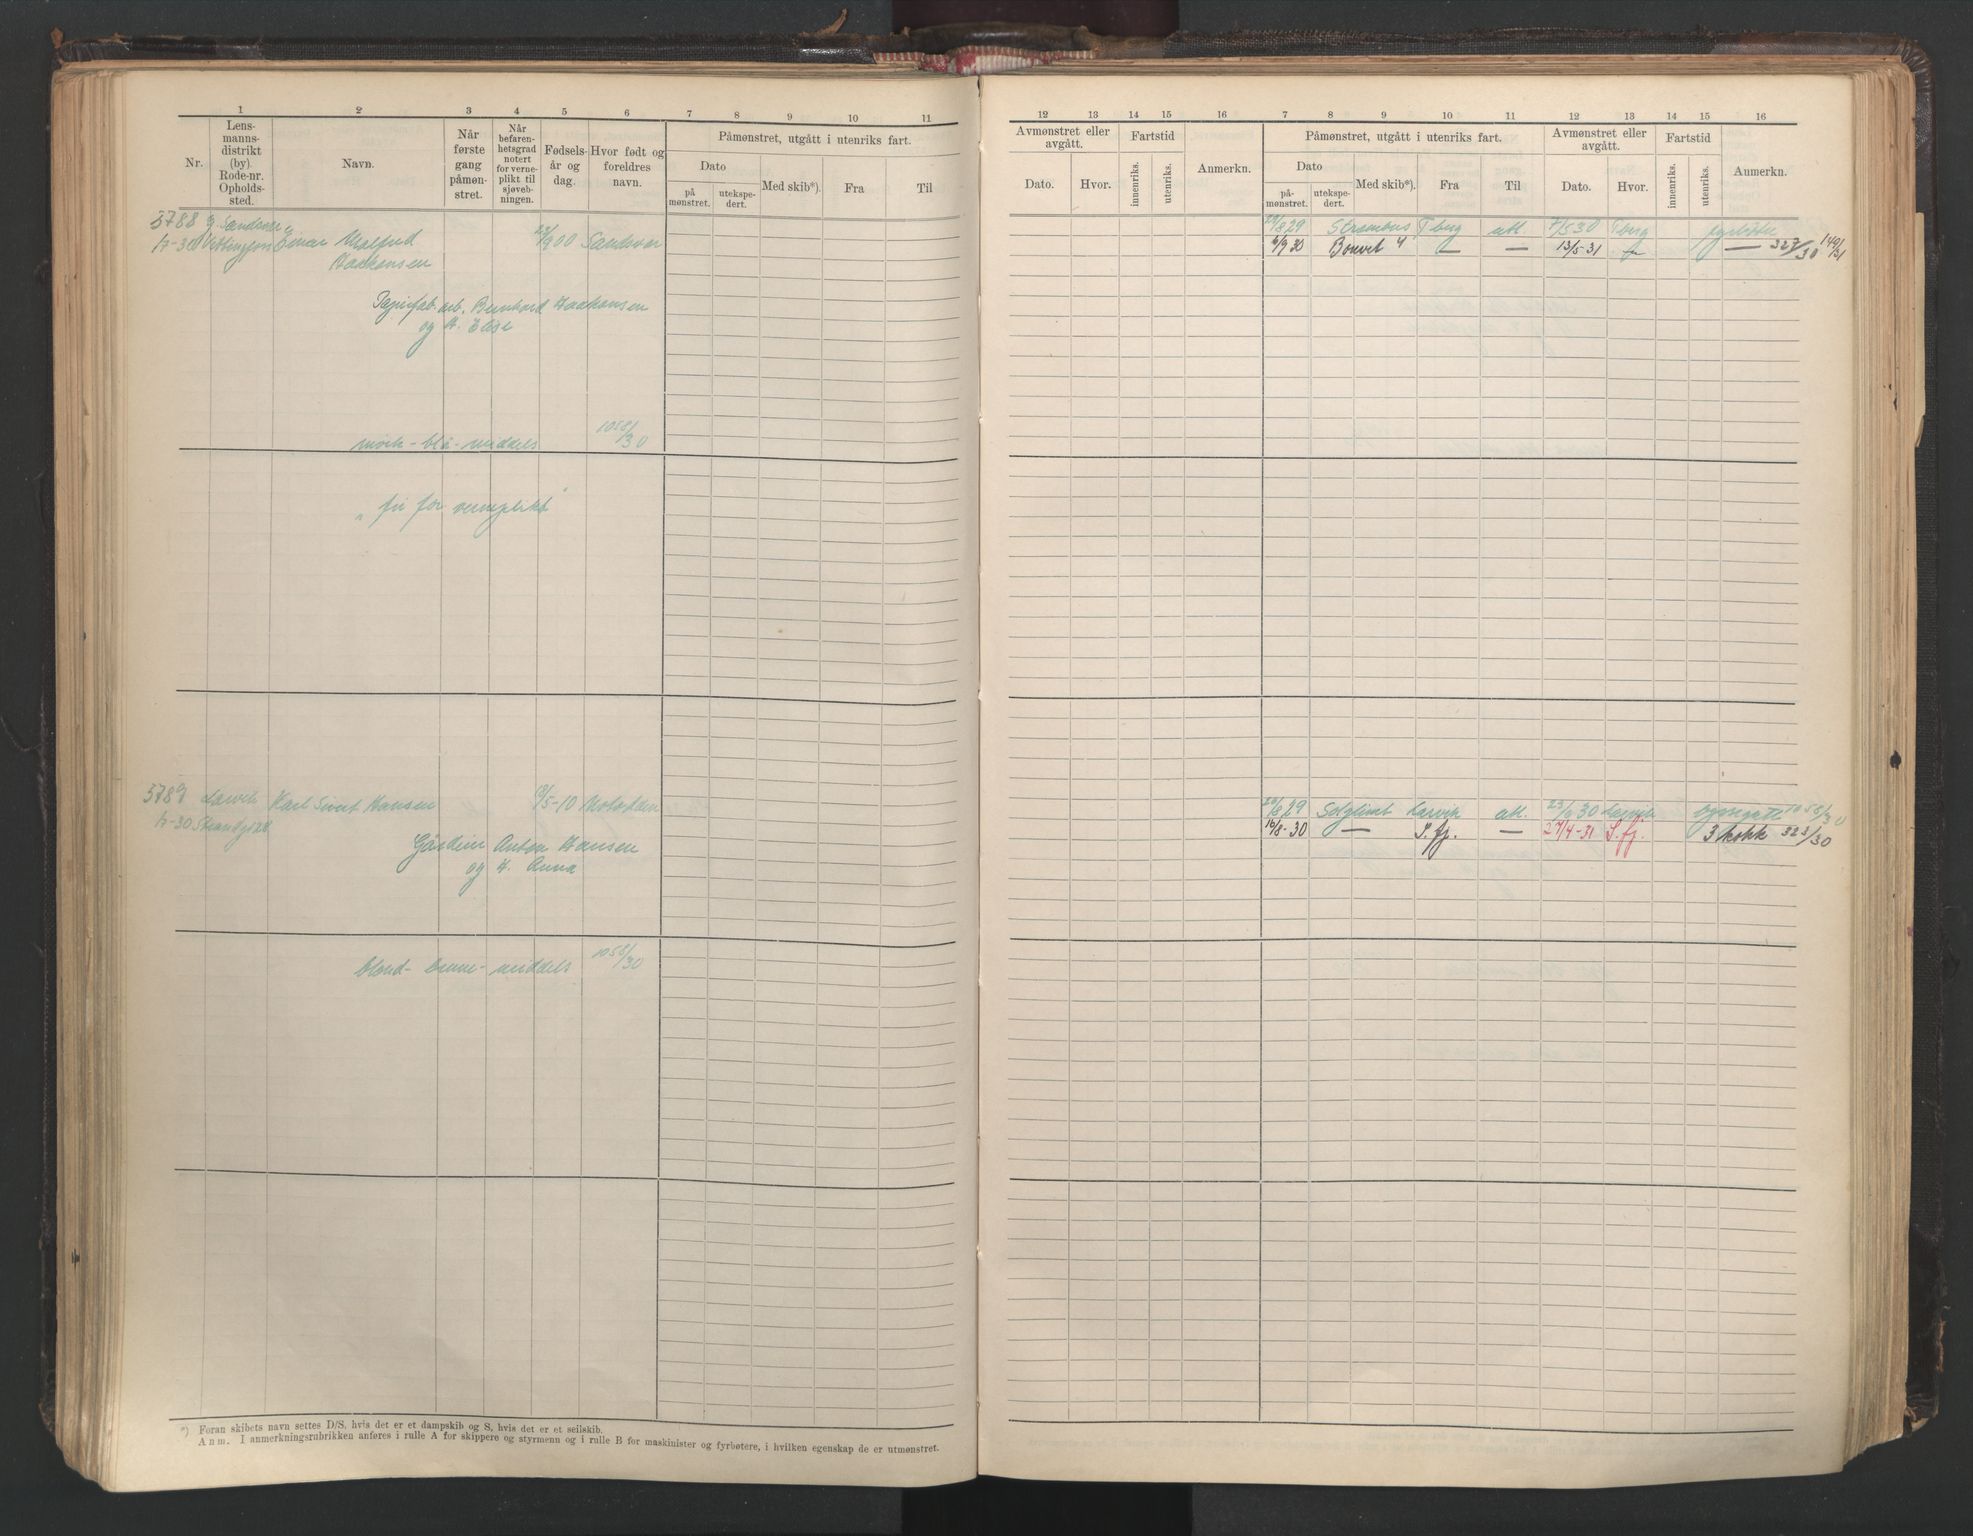 1 2 3 4 5 6 7 8 9 10 11
Nr.
Lens-
manns-
distrikt
(by).
Rode-nr.
Opholds-
sted.
Navn.
Når
første
gang
påmøn-
stret.
Når
befaren-
hetsgrad
notert
for verne-
plikt til
sjøveb-
ningen.
Fødsels-
år og
dag.
Hvor født og
foreldres
navn.
Påmønstret, utgått i utenriks fart.
Dato
på
mønstret.
utekspe-
dert.
Med skib*).
Fra
Til
5788 Sandar
Einar
Haakansen
00 Sandar
Papirfab. arb. Bernhard Haakansen
og H. Elise
mørk - blå - middels 1058/30
"fri for verneplikt"
5789 Larvik Karl Sivert Hansen /5-10 Notodden
7-30 Strandgt 28
Gårdeier Anton Hansen
og H. Anna
blond - brune - middels 1058/30
*) Foran skibets navn settes D/S, hvis det er et dampskib og S, hvis det er et seilskib.
Anm. I anmerkningsrubrikken anføres i rulle A for skippere og styrmenn og i rulle B for maskinister og fyrbøtere, i hvilken egenskap de er utmønstret.
12 13 14 15 16 7 8 9 10 11 12 13 14 15 16
Avmønstret eller
avgått.
Dato.
Hvor.
Fartstid
innenriks.
utenriks.
Anmerkn.
Påmønstret, utgått i utenriks fart.
Dato
på-
mønstret.
utekspe-
dert.
Med skib*).
Fra
Til
Avmønstret eller
avgått.
Dato.
Hvor.
Fartstid
innenriks.
utenriks.
Anmerkn.
/8 29 Strombus Tberg att. 7/5 30 Tberg fyrbøter
6/9 30 Bouvet 4 — — 13/5-31 — — 327/30 149/31
/8 29 Solglimt Larvik att. 23/ 30 Larvik byssegutt 1058/30
16/8-30 — S.fj. — 27/4-31 S.fj. 3 kokk 323/30